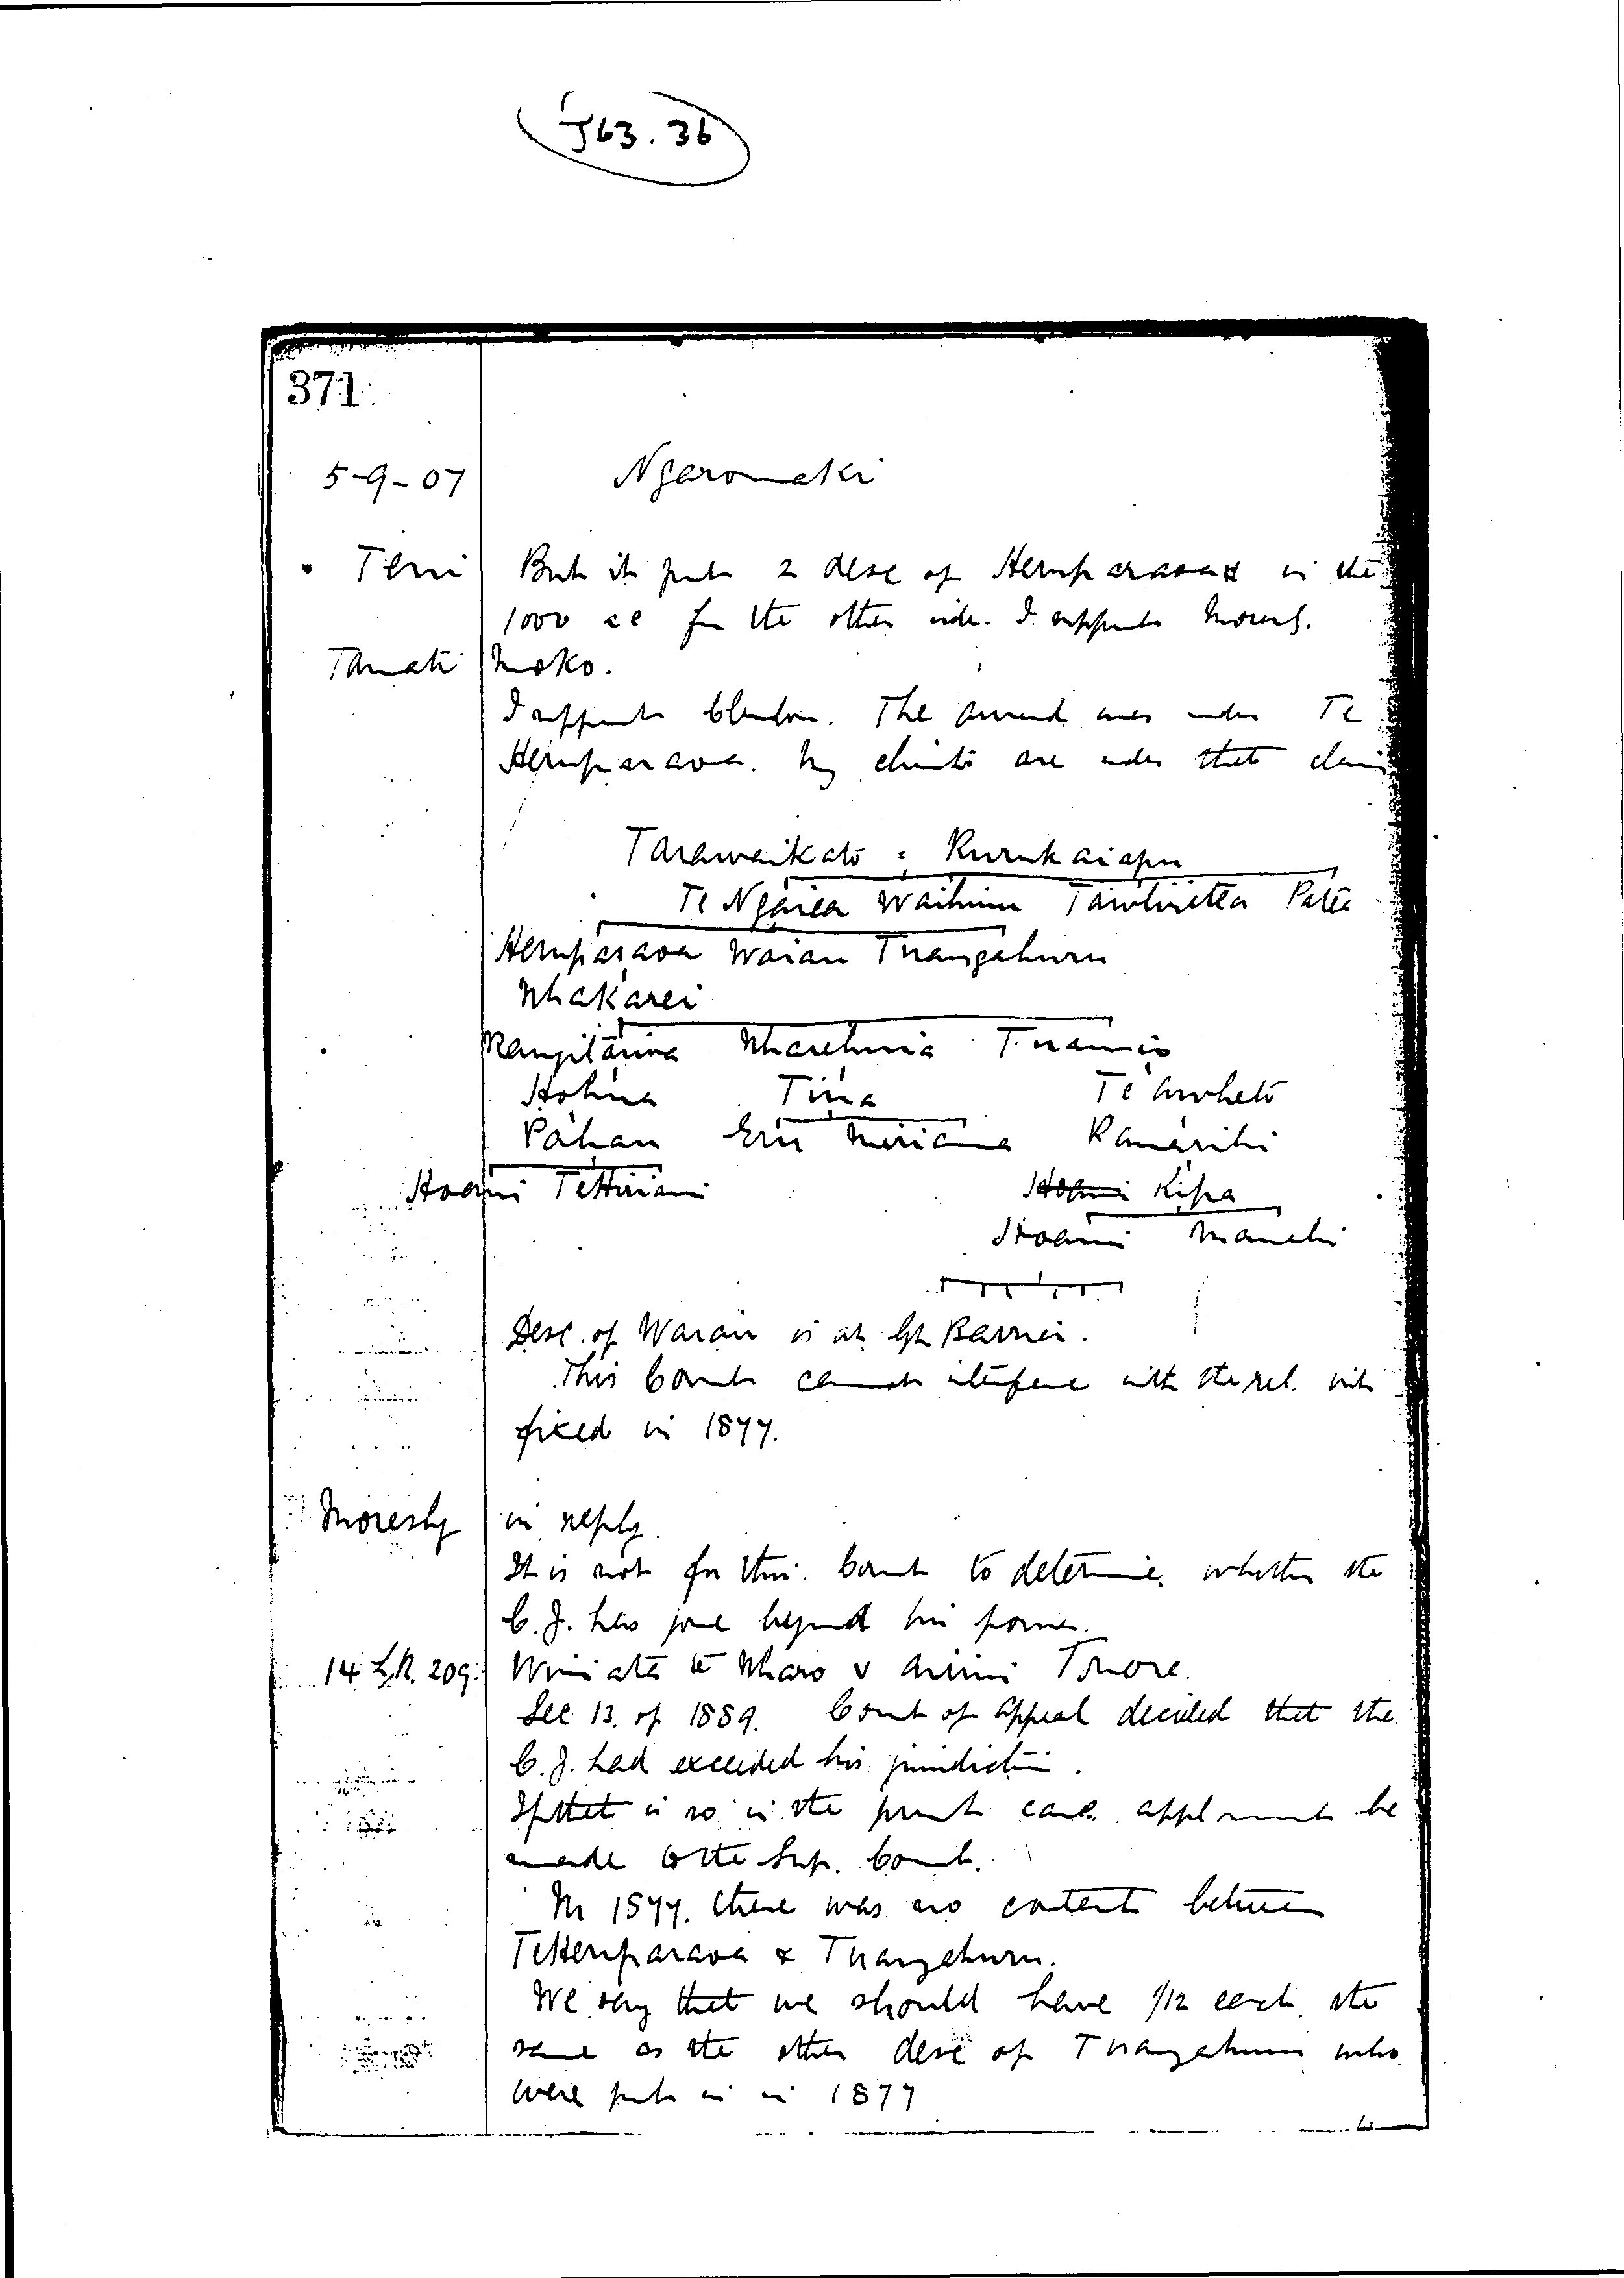 J63.36
371
5-9-07 Ngaromaki
Teni But it puts 2 desc of Heruparaoa in the
1000 ac for the other side. I support Moresby.
Tamati Moko.
I support Clendon. The award was under Te
Heruparaoa. My clients are under that claim
Tarawaikato = Rurukaiapu
Te Ngaiea Waihinu Tawhiritea Patea
Heruparaoa Waiau Tuangahuru
Whakarei
Rangitaiwa Wharehuia Tuamoio
Hohua Tiria Te Awheto
Pahau Eru Miriama Ramarihi
Hoani Te Hiriani Hoani Kipa
Hoani Manahi
Desc. of Waiau is at Gt Barrier.
This Court cannot interfere with the rel. ints
fixed in 1877.
Moresby in reply.
It is not for this Court to determine whether the
C.J. has gone beyond his power.
14 L.R. 209. Winiata te Wharo v Arimi
Sec 13. of 1889. Court of Appeal decided that the
C.J. had exceeded his jurisdiction.
If that is so in the present case appl must be
made to the Sup. Court.
In 1877. there was no contest between
Te Heruparaoa & Tuangahuru.
We say that we should have 1/12 each, the
same as the other desc of Tuangahuru who
were put in in 1877